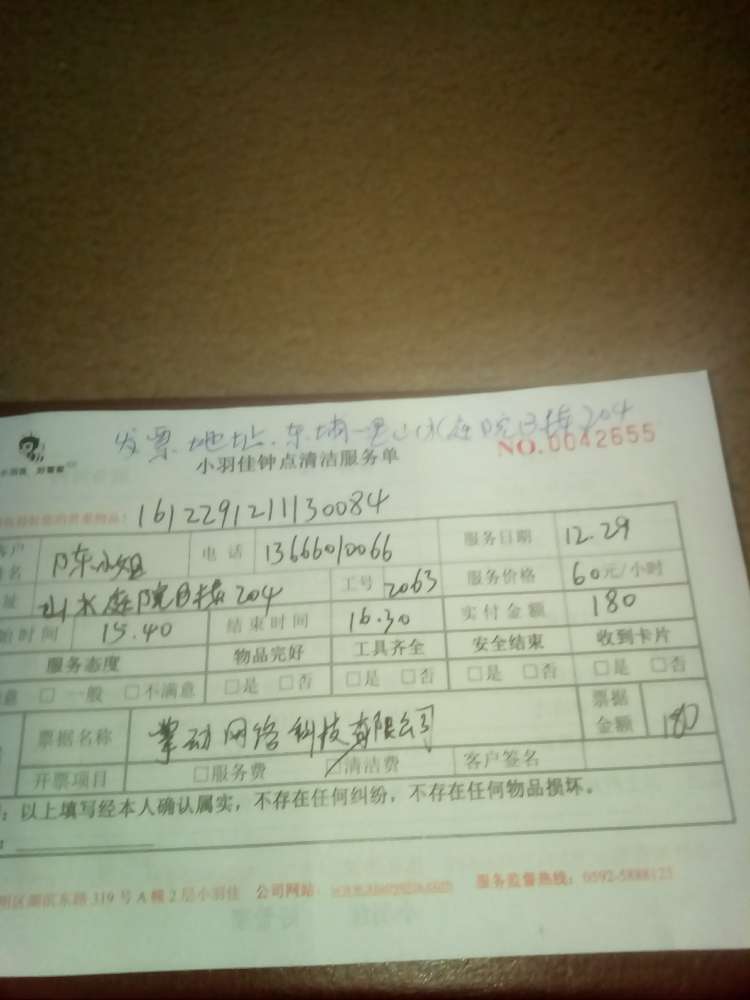 发票地址.东埔一里山水庭院B栋204
小羽佳 好管家
NO.0042655
小羽佳钟点清洁服务单
1612291211130084
客户 陈小姐 电话 13666010066 服务日期 12.29
名
址 山水庭院B栋204 工号 2063 服务价格 60元/小时
始时间 15.40 结束时间 16.30 实付金额 180
服务态度 物品完好 工具齐全 安全结束 收到卡片
意 □一般 □不满意 □是 □否 □是 □否 □是 □否 □是 □否
票据名称 掌动网络科技有限公司 票据金额 180
开票项目 □服务费 □清洁费 客户签名
：以上填写经本人确认属实，不存在任何纠纷，不存在任何物品损坏。
明区湖滨东路319号A幢2层小羽佳 公司网站： 服务监督热线：0592-5888123